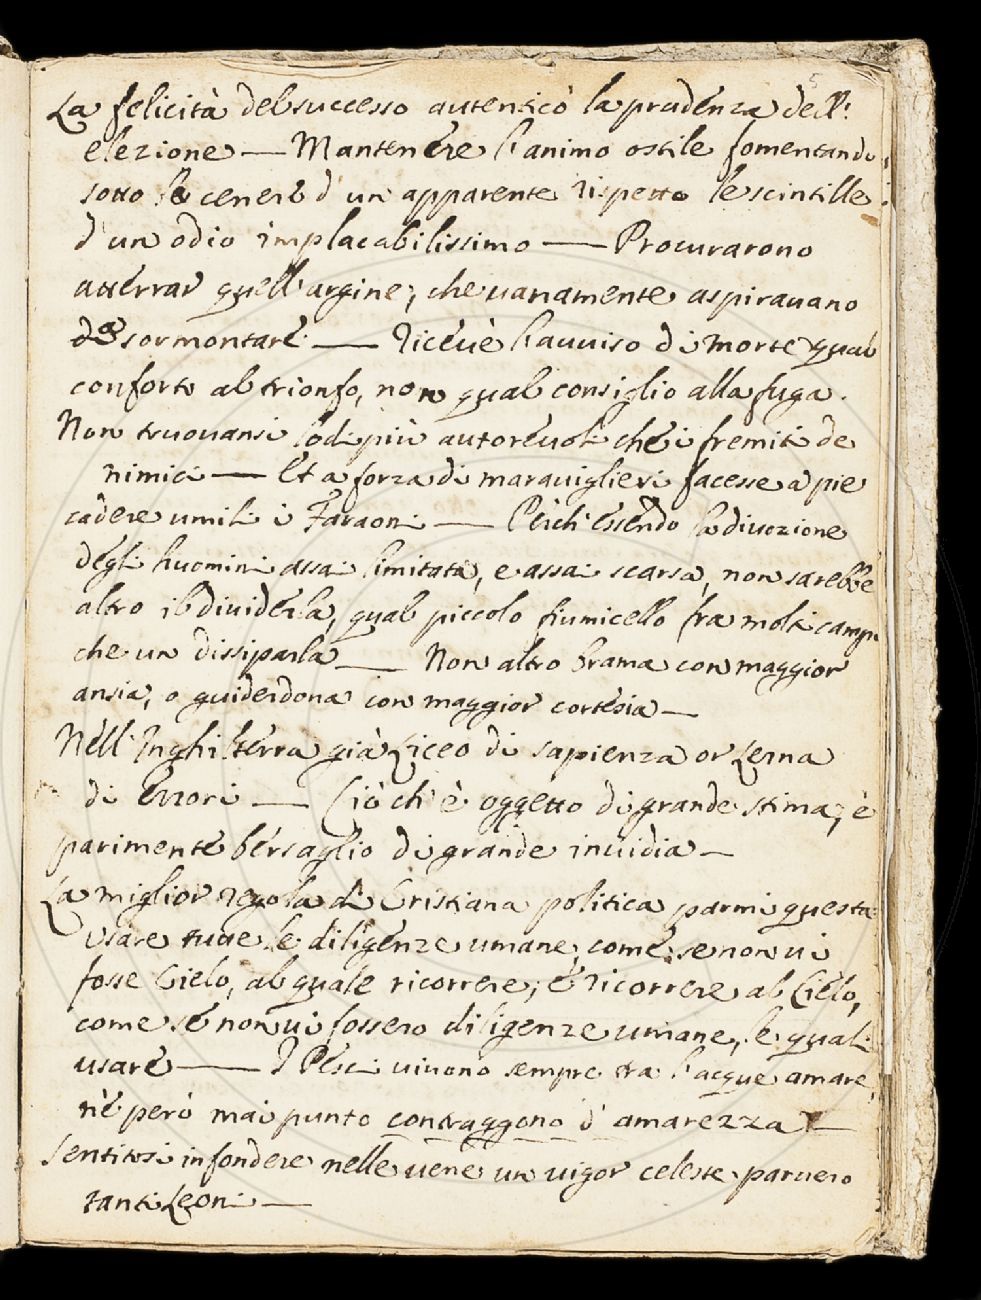 5
La felicità del successo autenticò la prudenza dell'
elezione — Mantenere l'animo ostile fomentando
sotto le ceneri d'un apparente rispetto le scintille
d'un odio implacabilissimo — Procurarono
atterrar quell'argine, che vanamente aspiravano
de sormontare — Ricevè l'avviso di morte qual
conforto al trionfo, non qual consiglio alla fuga.
Non truovansi lodi più autorevoli che i fremiti de
nimici — Et a forza di maraviglie si facesse a pie
cadere umili i Faraoni — Perch'essendo la divozione
degli huomini assai limitata, e assai scarsa, non sarebbe
altro il dividerla, qual piccolo fiumicello fra molti campi
che un dissiparla — Non altro brama con maggior
ansia, o guiderdona con maggior cortesia —
Nell'Inghilterra già Liceo di sapienza or Lerna
di Errori — Ciò ch'è oggetto di grande stima, è
parimente bersaglio di grande invidia —
La miglior regola di Cristiana politica parmi questa:
Usare tutte le diligenze umane, come se non vi
fosse Cielo, al quale ricorrere; e ricorrere al Cielo,
come se non vi fossero diligenze umane, le quali
usare — I Pesci vivono sempre tra l'acque amare,
nè però mai punto contraggono d'amarezza —
Sentitosi infondere nelle vene un vigor celeste parvero
tanti Leoni —